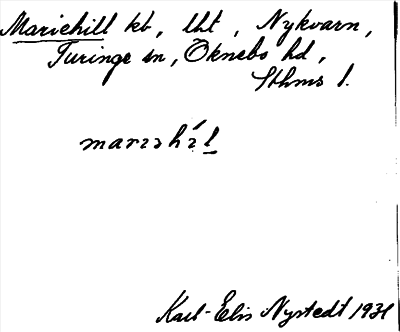 Mariehill kb, lht, Nykvarn,
Turinge sn, Öknebo hd,
Sthms l.
Karl-Elis Nystedt 1931